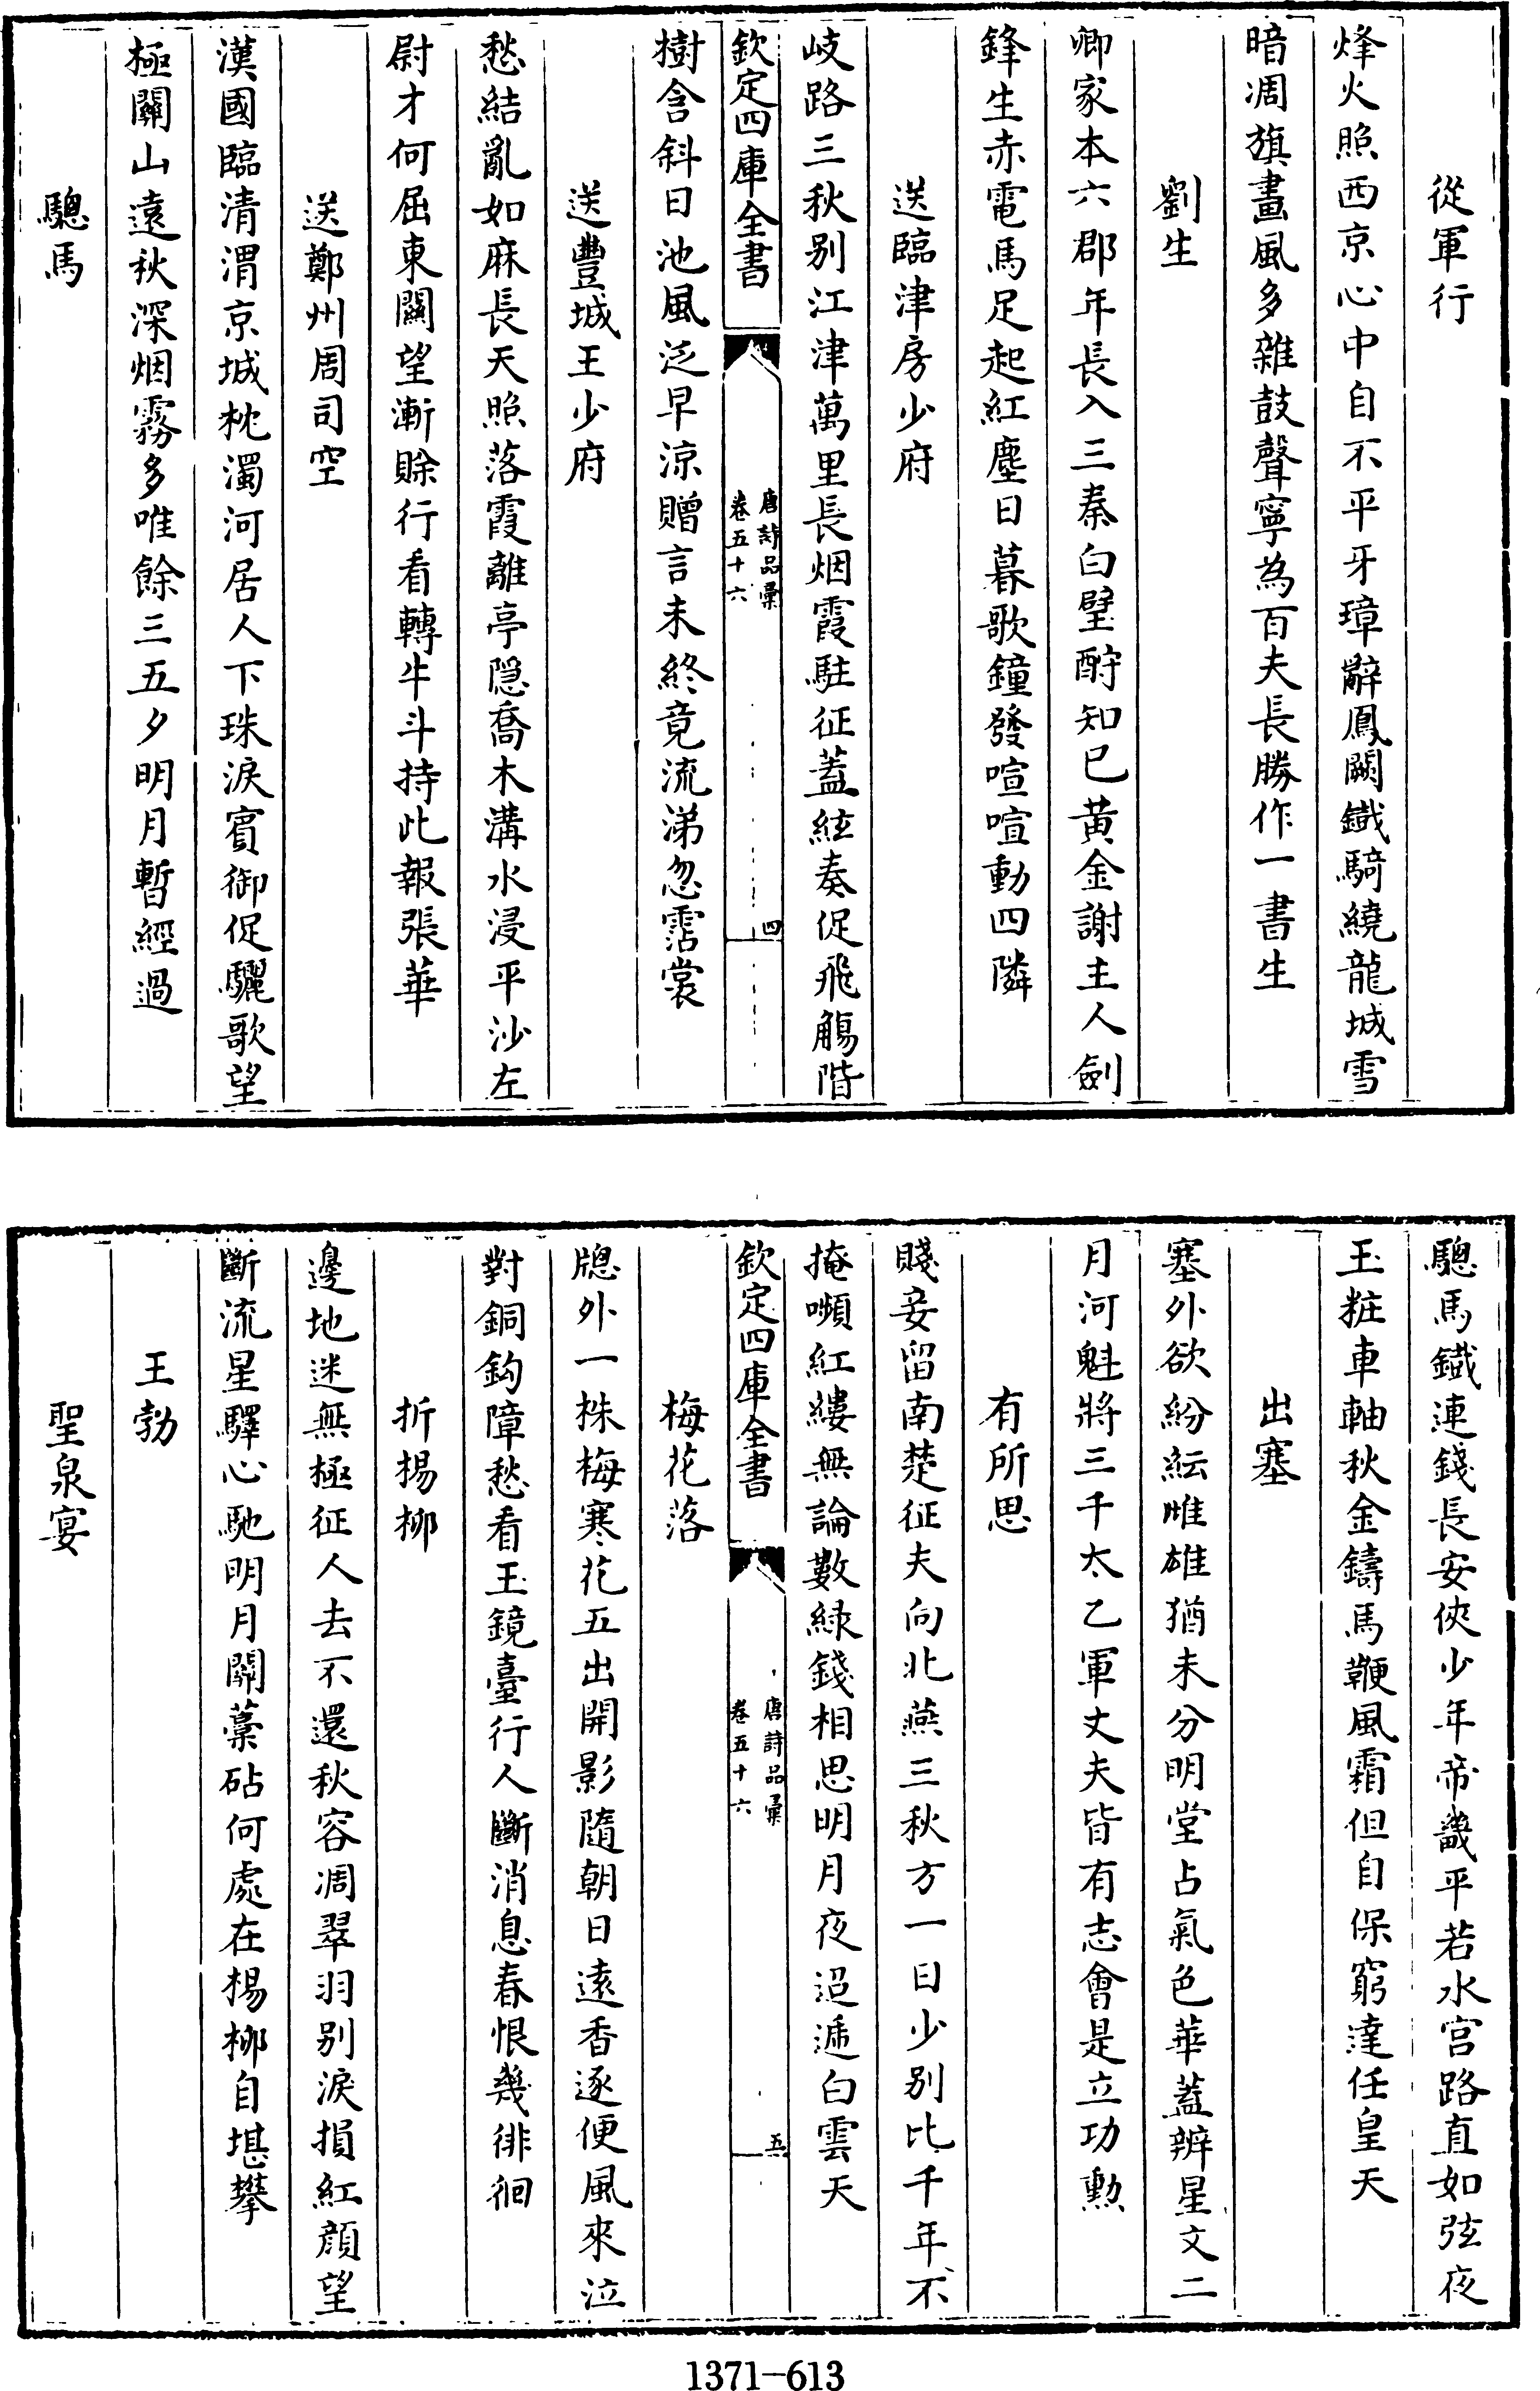 從軍行
烽火照西京心中自不平牙璋辭鳳闕鐵騎繞龍城雪
暗凋旗畫風多雜鼓聲寧為百夫長勝作一書生
劉生
卿家本六郡年長入三秦白璧酧知已黄金謝主人劍
鋒生赤電馬足起紅塵日暮歌鐘發喧喧動四隣
送臨津房少府
岐路三秋别江津萬里長烟霞駐征蓋絃奏促飛觴階
欽定四庫全書
唐詩品彚
卷五十六
四
樹含斜日池風泛早涼贈言未終竟流涕忽霑裳
送豐城王少府
愁結亂如麻長天照落霞離亭隠喬木溝水浸平沙左
尉才何屈東關望漸賒行看轉牛斗持此報張華
送鄭州周司空
漢國臨清渭京城枕濁河居人下珠淚賓御促驪歌望
極關山遠秋深烟霧多唯餘三五夕明月暫經過
驄馬
驄馬鐵連錢長安俠少年帝畿平若水官路直如弦夜
玉粧車軸秋金鑄馬鞭風霜但自保窮達任皇天
出塞
塞外欲紛紜雌雄猶未分明堂占氣色華蓋辨星文二
月河魁將三千太乙軍丈夫皆有志會是立功勲
有所思
賤妾留南楚征夫向北燕三秋方一日少别比千年不
掩嚬紅縷無論數緑錢相思明月夜迢遞白雲天
欽定四庫全書
唐詩品彚
卷五十六
五
梅花落
牕外一株梅寒花五出開影隨朝日遠香逐便風來泣
對銅鈎障愁看玉鏡臺行人斷消息春恨幾徘徊
折楊柳
邊地迷無極征人去不還秋容凋翠羽别淚損紅顔望
斷流星驛心馳明月關藁砧何處在楊柳自堪攀
王勃
聖泉宴
1371-613